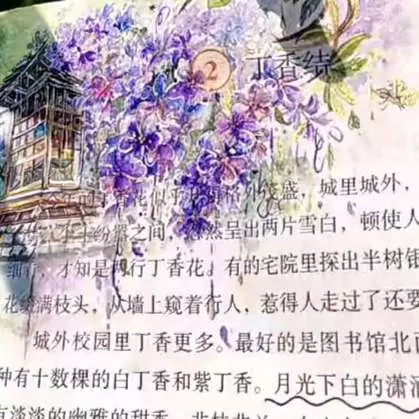 2 丁香结
盛，城里城外，
之间，忽然呈出两片雪白，顿使人
才知是两行丁香花。有的宅院里探出半树银
花缀满枝头，从墙上窥着行人，惹得人走过了还要
城外校园里丁香更多。最好的是图书馆北面
种有十数棵的白丁香和紫丁香。月光下白的潇洒
有淡淡的幽雅的甜香，非桂非兰